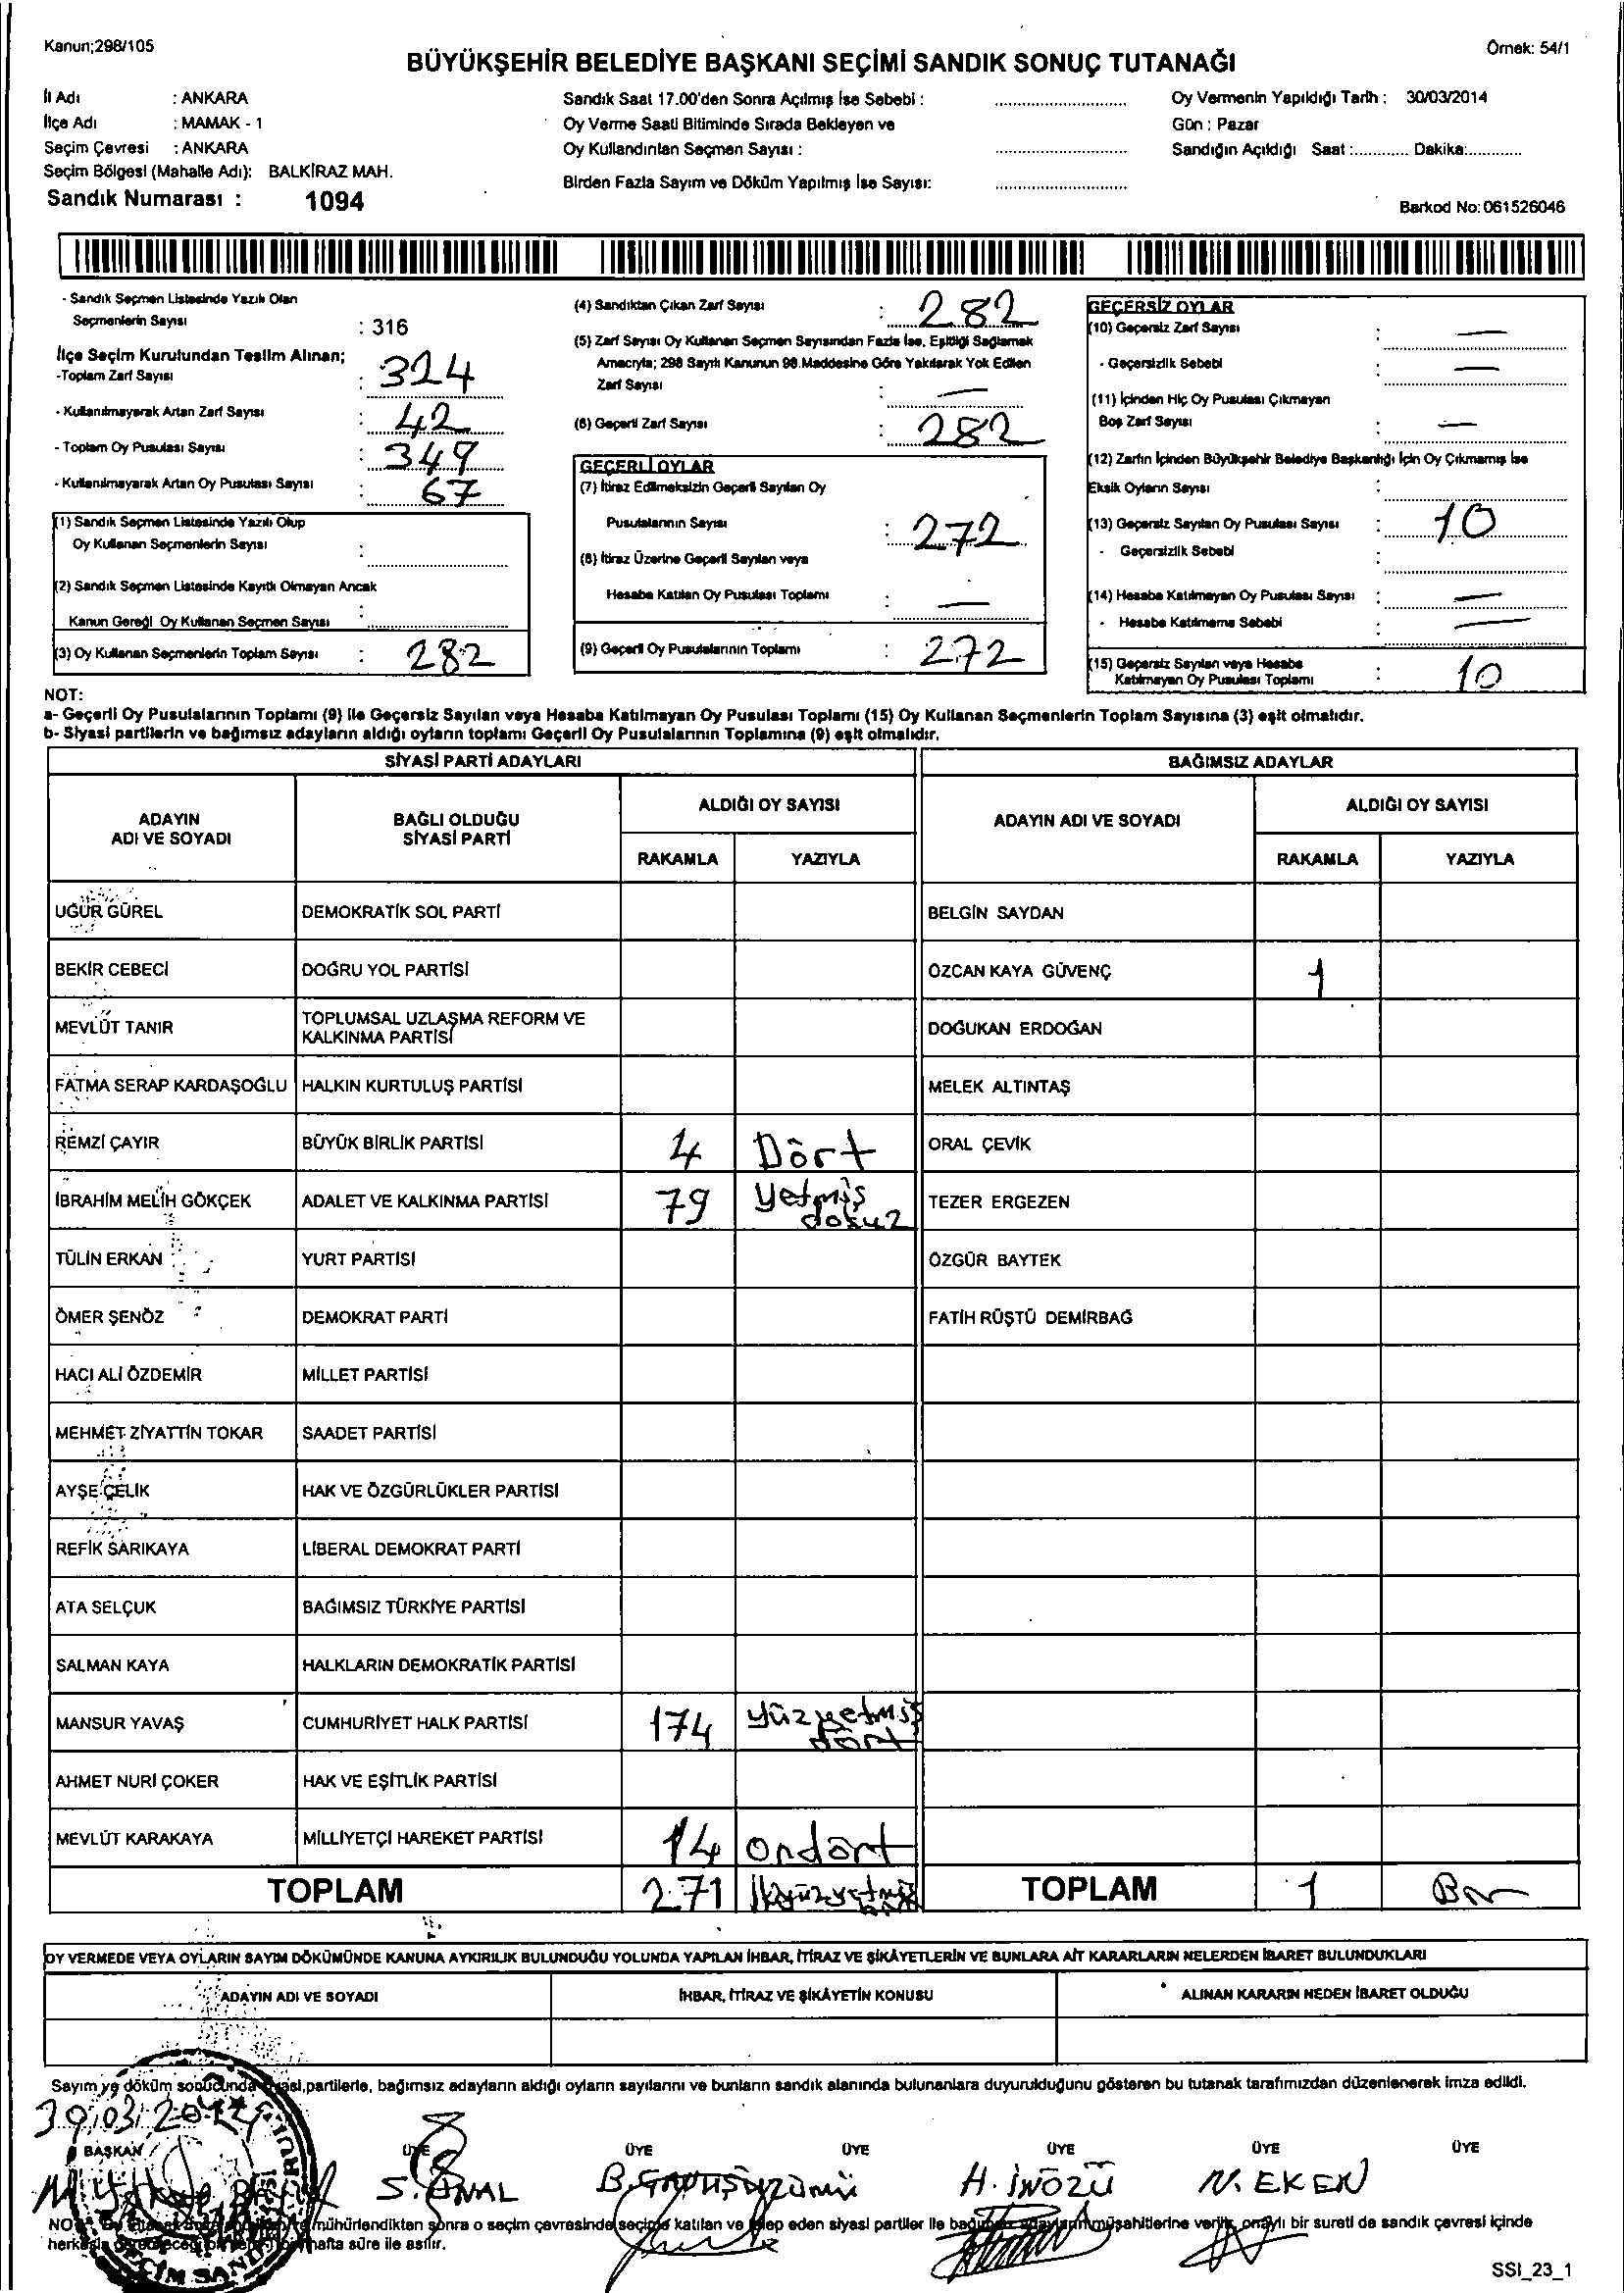 Kanun;298/105
Örnek: 54/1
BÜYÜKŞEHİR BELEDİYE BAŞKANI SEÇİMİ SANDIK SONUÇ TUTANAĞI
İl Adı : ANKARA
İlçe Adı : MAMAK - 1
Seçim Çevresi : ANKARA
Seçim Bölgesi (Mahalle Adı): BALKİRAZ MAH.
Sandık Numarası : 1094
Sandık Saat 17.00'den Sonra Açılmış İse Sebebi :
Oy Verme Saati Bitiminde Sırada Bekleyen ve
Oy Kullandırılan Seçmen Sayısı :
Birden Fazla Sayım ve Döküm Yapılmış İse Sayısı:
Oy Vermenin Yapıldığı Tarih : 30/03/2014
Gün : Pazar
Sandığın Açıldığı Saat :............ Dakika:............
Barkod No: 061526046
- Sandık Seçmen Listesinde Yazılı Olan
Seçmenlerin Sayısı : 316
İlçe Seçim Kurulundan Teslim Alınan;
-Toplam Zarf Sayısı : 324
- Kullanılmayarak Artan Zarf Sayısı : 42
- Toplam Oy Pusulası Sayısı : 349
- Kullanılmayarak Artan Oy Pusulası Sayısı : 67
(1) Sandık Seçmen Listesinde Yazılı Olup
Oy Kullanan Seçmenlerin Sayısı :
(2) Sandık Seçmen Listesinde Kayıtlı Olmayan Ancak
Kanun Gereği Oy Kullanan Seçmen Sayısı :
(3) Oy Kullanan Seçmenlerin Toplam Sayısı : 282
(4) Sandıktan Çıkan Zarf Sayısı : 282
(5) Zarf Sayısı Oy Kullanan Seçmen Sayısından Fazla İse, Eşitliği Sağlamak
Amacıyla; 298 Sayılı Kanunun 98.Maddesine Göre Yakılarak Yok Edilen
Zarf Sayısı : —
(6) Geçerli Zarf Sayısı : 282
GEÇERLİ OYLAR
(7) İtiraz Edilmeksizin Geçerli Sayılan Oy
Pusulalarının Sayısı : 272
(8) İtiraz Üzerine Geçerli Sayılan veya
Hesaba Katılan Oy Pusulası Toplamı : —
(9) Geçerli Oy Pusulalarının Toplamı : 272
GEÇERSİZ OYLAR
(10) Geçersiz Zarf Sayısı : —
- Geçersizlik Sebebi : —
(11) İçinden Hiç Oy Pusulası Çıkmayan
Boş Zarf Sayısı : —
(12) Zarfın İçinden Büyükşehir Belediye Başkanlığı İçin Oy Çıkmamış İse
Eksik Oyların Sayısı :
(13) Geçersiz Sayılan Oy Pusulası Sayısı : 10
- Geçersizlik Sebebi :
(14) Hesaba Katılmayan Oy Pusulası Sayısı : —
- Hesaba Katılmama Sebebi : —
(15) Geçersiz Sayılan veya Hesaba
Katılmayan Oy Pusulası Toplamı : 10
NOT:
a- Geçerli Oy Pusulalarının Toplamı (9) ile Geçersiz Sayılan veya Hesaba Katılmayan Oy Pusulası Toplamı (15) Oy Kullanan Seçmenlerin Toplam Sayısına (3) eşit olmalıdır.
b- Siyasi partilerin ve bağımsız adayların aldığı oyların toplamı Geçerli Oy Pusulalarının Toplamına (9) eşit olmalıdır.
SİYASİ PARTİ ADAYLARI BAĞIMSIZ ADAYLAR
ADAYIN ADI VE SOYADI BAĞLI OLDUĞU SİYASİ PARTİ ALDIĞI OY SAYISI ADAYIN ADI VE SOYADI ALDIĞI OY SAYISI
RAKAMLA YAZIYLA RAKAMLA YAZIYLA
UĞUR GÜREL DEMOKRATİK SOL PARTİ BELGİN SAYDAN
BEKİR CEBECİ DOĞRU YOL PARTİSİ ÖZCAN KAYA GÜVENÇ 1
MEVLÜT TANIR TOPLUMSAL UZLAŞMA REFORM VE KALKINMA PARTİSİ DOĞUKAN ERDOĞAN
FATMA SERAP KARDAŞOĞLU HALKIN KURTULUŞ PARTİSİ MELEK ALTINTAŞ
REMZİ ÇAYIR BÜYÜK BİRLİK PARTİSİ 4 Dört ORAL ÇEVİK
İBRAHİM MELİH GÖKÇEK ADALET VE KALKINMA PARTİSİ 79 yetmiş dokuz TEZER ERGEZEN
TÜLİN ERKAN YURT PARTİSİ ÖZGÜR BAYTEK
ÖMER ŞENÖZ DEMOKRAT PARTİ FATİH RÜŞTÜ DEMİRBAĞ
HACI ALİ ÖZDEMİR MİLLET PARTİSİ
MEHMET ZİYATTİN TOKAR SAADET PARTİSİ
AYŞE ÇELİK HAK VE ÖZGÜRLÜKLER PARTİSİ
REFİK SARIKAYA LİBERAL DEMOKRAT PARTİ
ATA SELÇUK BAĞIMSIZ TÜRKİYE PARTİSİ
SALMAN KAYA HALKLARIN DEMOKRATİK PARTİSİ
MANSUR YAVAŞ CUMHURİYET HALK PARTİSİ 174 yüzyetmiş dört
AHMET NURİ ÇOKER HAK VE EŞİTLİK PARTİSİ
MEVLÜT KARAKAYA MİLLİYETÇİ HAREKET PARTİSİ 14 ondört
TOPLAM 271 TOPLAM 1 Bir
OY VERMEDE VEYA OYLARIN SAYIM DÖKÜMÜNDE KANUNA AYKIRILIK BULUNDUĞU YOLUNDA YAPILAN İHBAR, İTİRAZ VE ŞİKÂYETLERİN VE BUNLARA AİT KARARLARIN NELERDEN İBARET BULUNDUKLARI
ADAYIN ADI VE SOYADI İHBAR, İTİRAZ VE ŞİKÂYETİN KONUSU ALINAN KARARIN NEDEN İBARET OLDUĞU
Sayım ve döküm sonucunda partilerle, bağımsız adayların aldığı oyların sayılarını ve bunların sandık alanında bulunanlara duyurulduğunu gösteren bu tutanak tarafımızdan düzenlenerek imza edildi.
30/03/2014
BAŞKAN ÜYE ÜYE ÜYE ÜYE ÜYE ÜYE
S. ÜNAL H. İNÖZÜ N. EKEN
mühürlendikten sonra o seçim çevresinde seçime katılan ve talep eden siyasi partiler ile bağımsız müşahitlerine verilir, onaylı bir sureti de sandık çevresi içinde
hafta süre ile asılır.
SSI_23_1